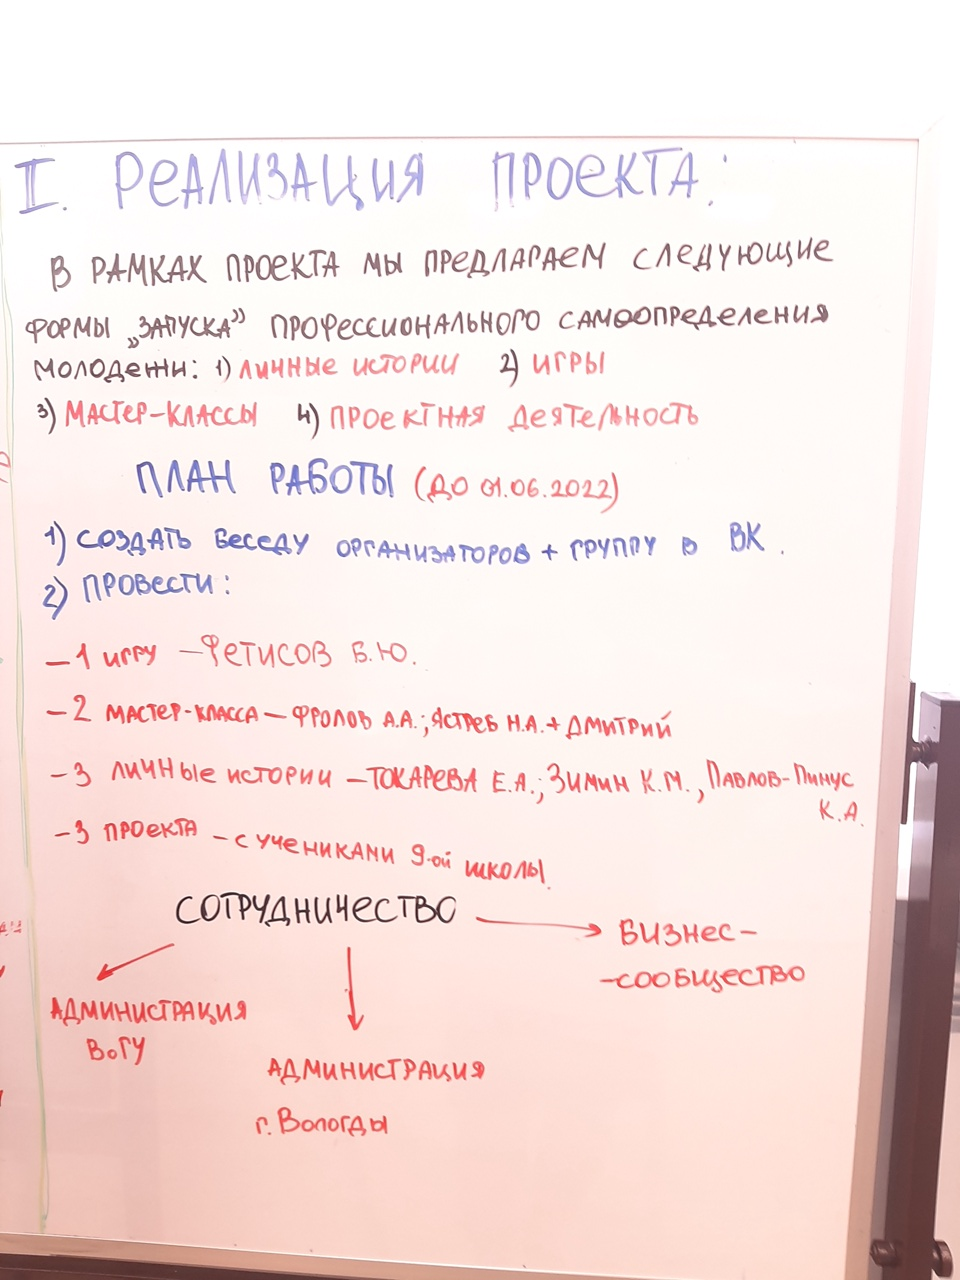 II. РЕАЛИЗАЦИЯ ПРОЕКТА:
В РАМКАХ ПРОЕКТА МЫ ПРЕДЛАГАЕМ СЛЕДУЮЩИЕ
ФОРМЫ „ЗАПУСКА” ПРОФЕССИОНАЛЬНОГО САМООПРЕДЕЛЕНИЯ
МОЛОДЕЖИ: 1) ЛИЧНЫЕ ИСТОРИИ 2) ИГРЫ
3) МАСТЕР-КЛАССЫ 4) ПРОЕКТНАЯ ДЕЯТЕЛЬНОСТЬ
ПЛАН РАБОТЫ (ДО 01.06.2022)
1) СОЗДАТЬ БЕСЕДУ ОРГАНИЗАТОРОВ + ГРУППУ В ВК.
2) ПРОВЕСТИ:
– 1 ИГРУ – ФЕТИСОВ Б.Ю.
– 2 МАСТЕР-КЛАССА – ФРОЛОВ А.А.; ЯСТРЕБ Н.А. + ДМИТРИЙ
– 3 ЛИЧНЫЕ ИСТОРИИ – ТОКАРЕВА Е.А.; ЗИМИН К.М., ПАВЛОВ-ПИНУС
К.А.
– 3 ПРОЕКТА – С УЧЕНИКАМИ 9-ОЙ ШКОЛЫ.
СОТРУДНИЧЕСТВО
БИЗНЕС–
–СООБЩЕСТВО
АДМИНИСТРАЦИЯ
ВоГУ
АДМИНИСТРАЦИЯ
г. ВОЛОГДЫ